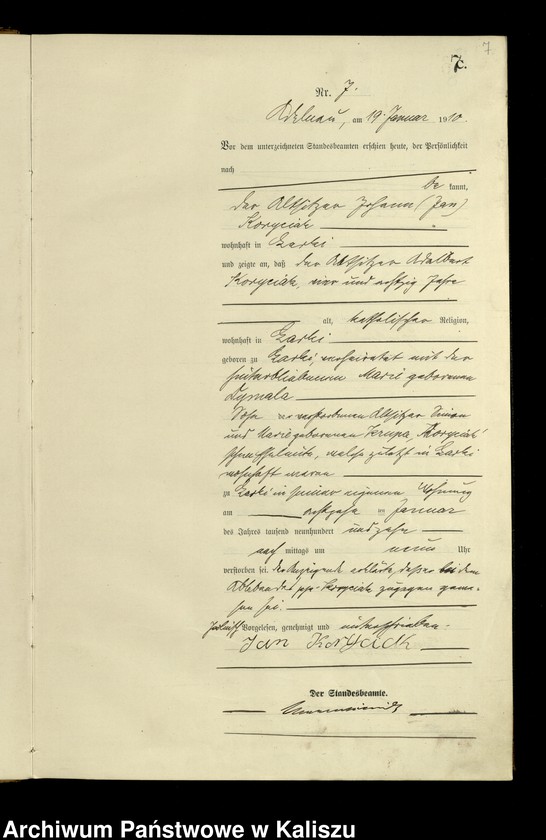 7.
7.
Nr. 7.
Adelnau, am 19. Januar 1910.
Vor dem unterzeichneten Standesbeamten erschien heute, der Persönlichkeit
nach
be kannt,
der Altsitzer Johann (Jan)
Koryciak
wohnhaft in Garki
und zeigte an, daß der Altsitzer Adalbert
Koryciak, vier und achtzig Jahre
alt, katholischer Religion,
wohnhaft in Garki
geboren zu Garki, verheiratet mit der
hinterbliebenen Marie geborenen
Sohn der verstorbenen Altsitzer Simon
und Marie geborenen Koryciak'
schen Eheleute, welche zuletzt in Garki
wohnhaft waren
zu Garki in seiner eigenen Wohnung
am Januar
des Jahres tausend neunhundert und zehn
nach mittags um neun Uhr
verstorben sei. Der Anzeigende erklärte, daß er bei dem
Ableben des pp. Koryciak zugegen gewe-
sen sei.
Vorgelesen, genehmigt und unterschrieben.
Jan Koryciak
Der Standesbeamte.
Archiwum Państwowe w Kaliszu